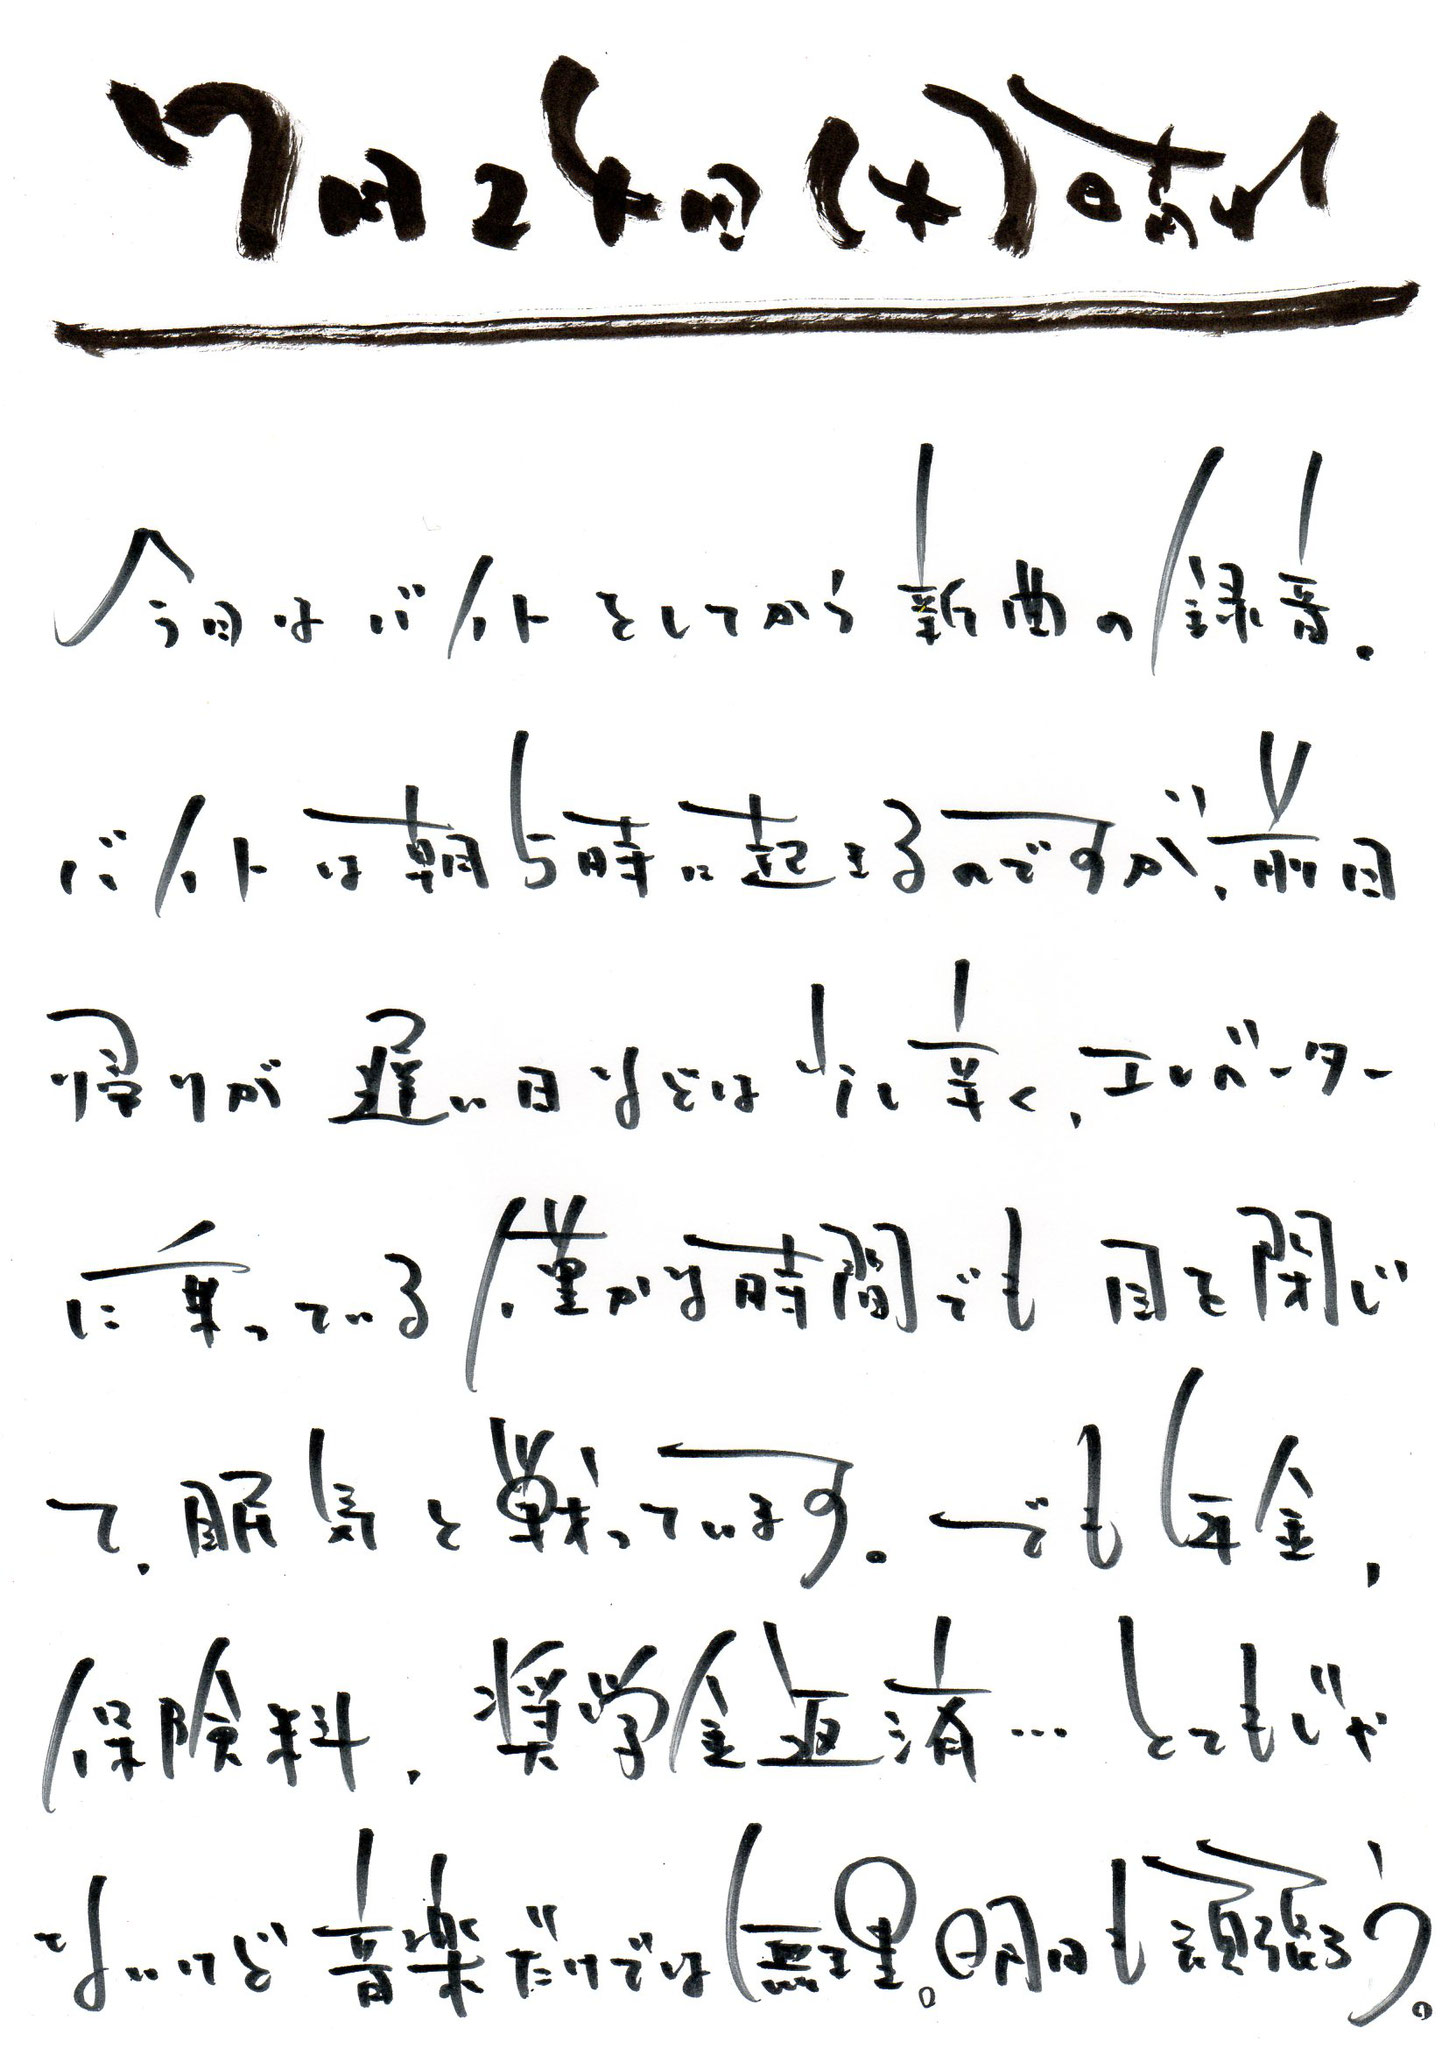 7月24日(木)晴れ
今日はバイトをしてから新曲の録音。
バイトは朝5時に起きるのですが、前日
帰りが遅い日などは少し辛く、エレベーター
に乗っている僅かな時間でも目を閉じ
て、眠気と戦っています。でも年金、
保険料、奨学金返済…とてもじゃ
ないけど音楽だけでは無理。明日も頑張ろう。